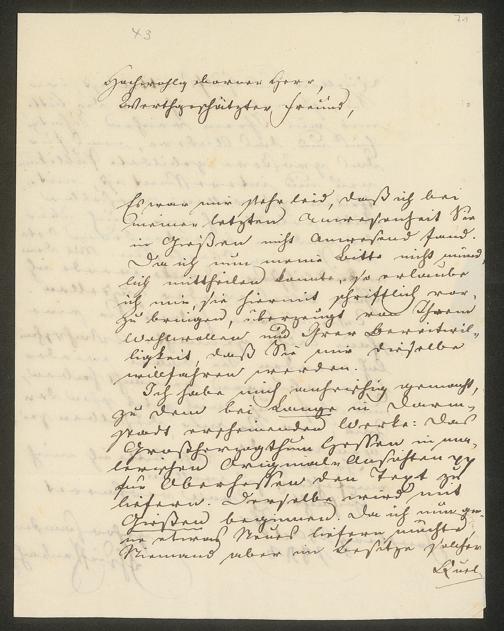 43
Hochwohlgeborner Herr,
Werthgeschätzter Freund,
Es war mir sehr leid, daß ich bei
meiner letzten Anwesenheit Sie
in Gießen nicht anwesend fand.
Da ich nun meine Bitte nicht münd-
lich mittheilen konnte, so erlaube
ich mir, sie hiermit schriftlich vor-
zu bringen, überzeugt von Ihrem
Wohlwollen und Ihrer Bereitwil-
ligkeit, daß Sie mir dieselbe
willfahren werden.
Ich habe mich anheischig gemacht,
zu dem bei Lange in Darm-
stadt erscheinenden Werke: Das
Großherzogthum Hessen in ma-
lerischen Original-Ansichten
für Oberhessen den Text zu
liefern. Derselbe wird mit
Gießen beginnen. Da ich nun ger-
ne etwas Neues liefern möchte
Niemand aber im Besitze solcher
Quel